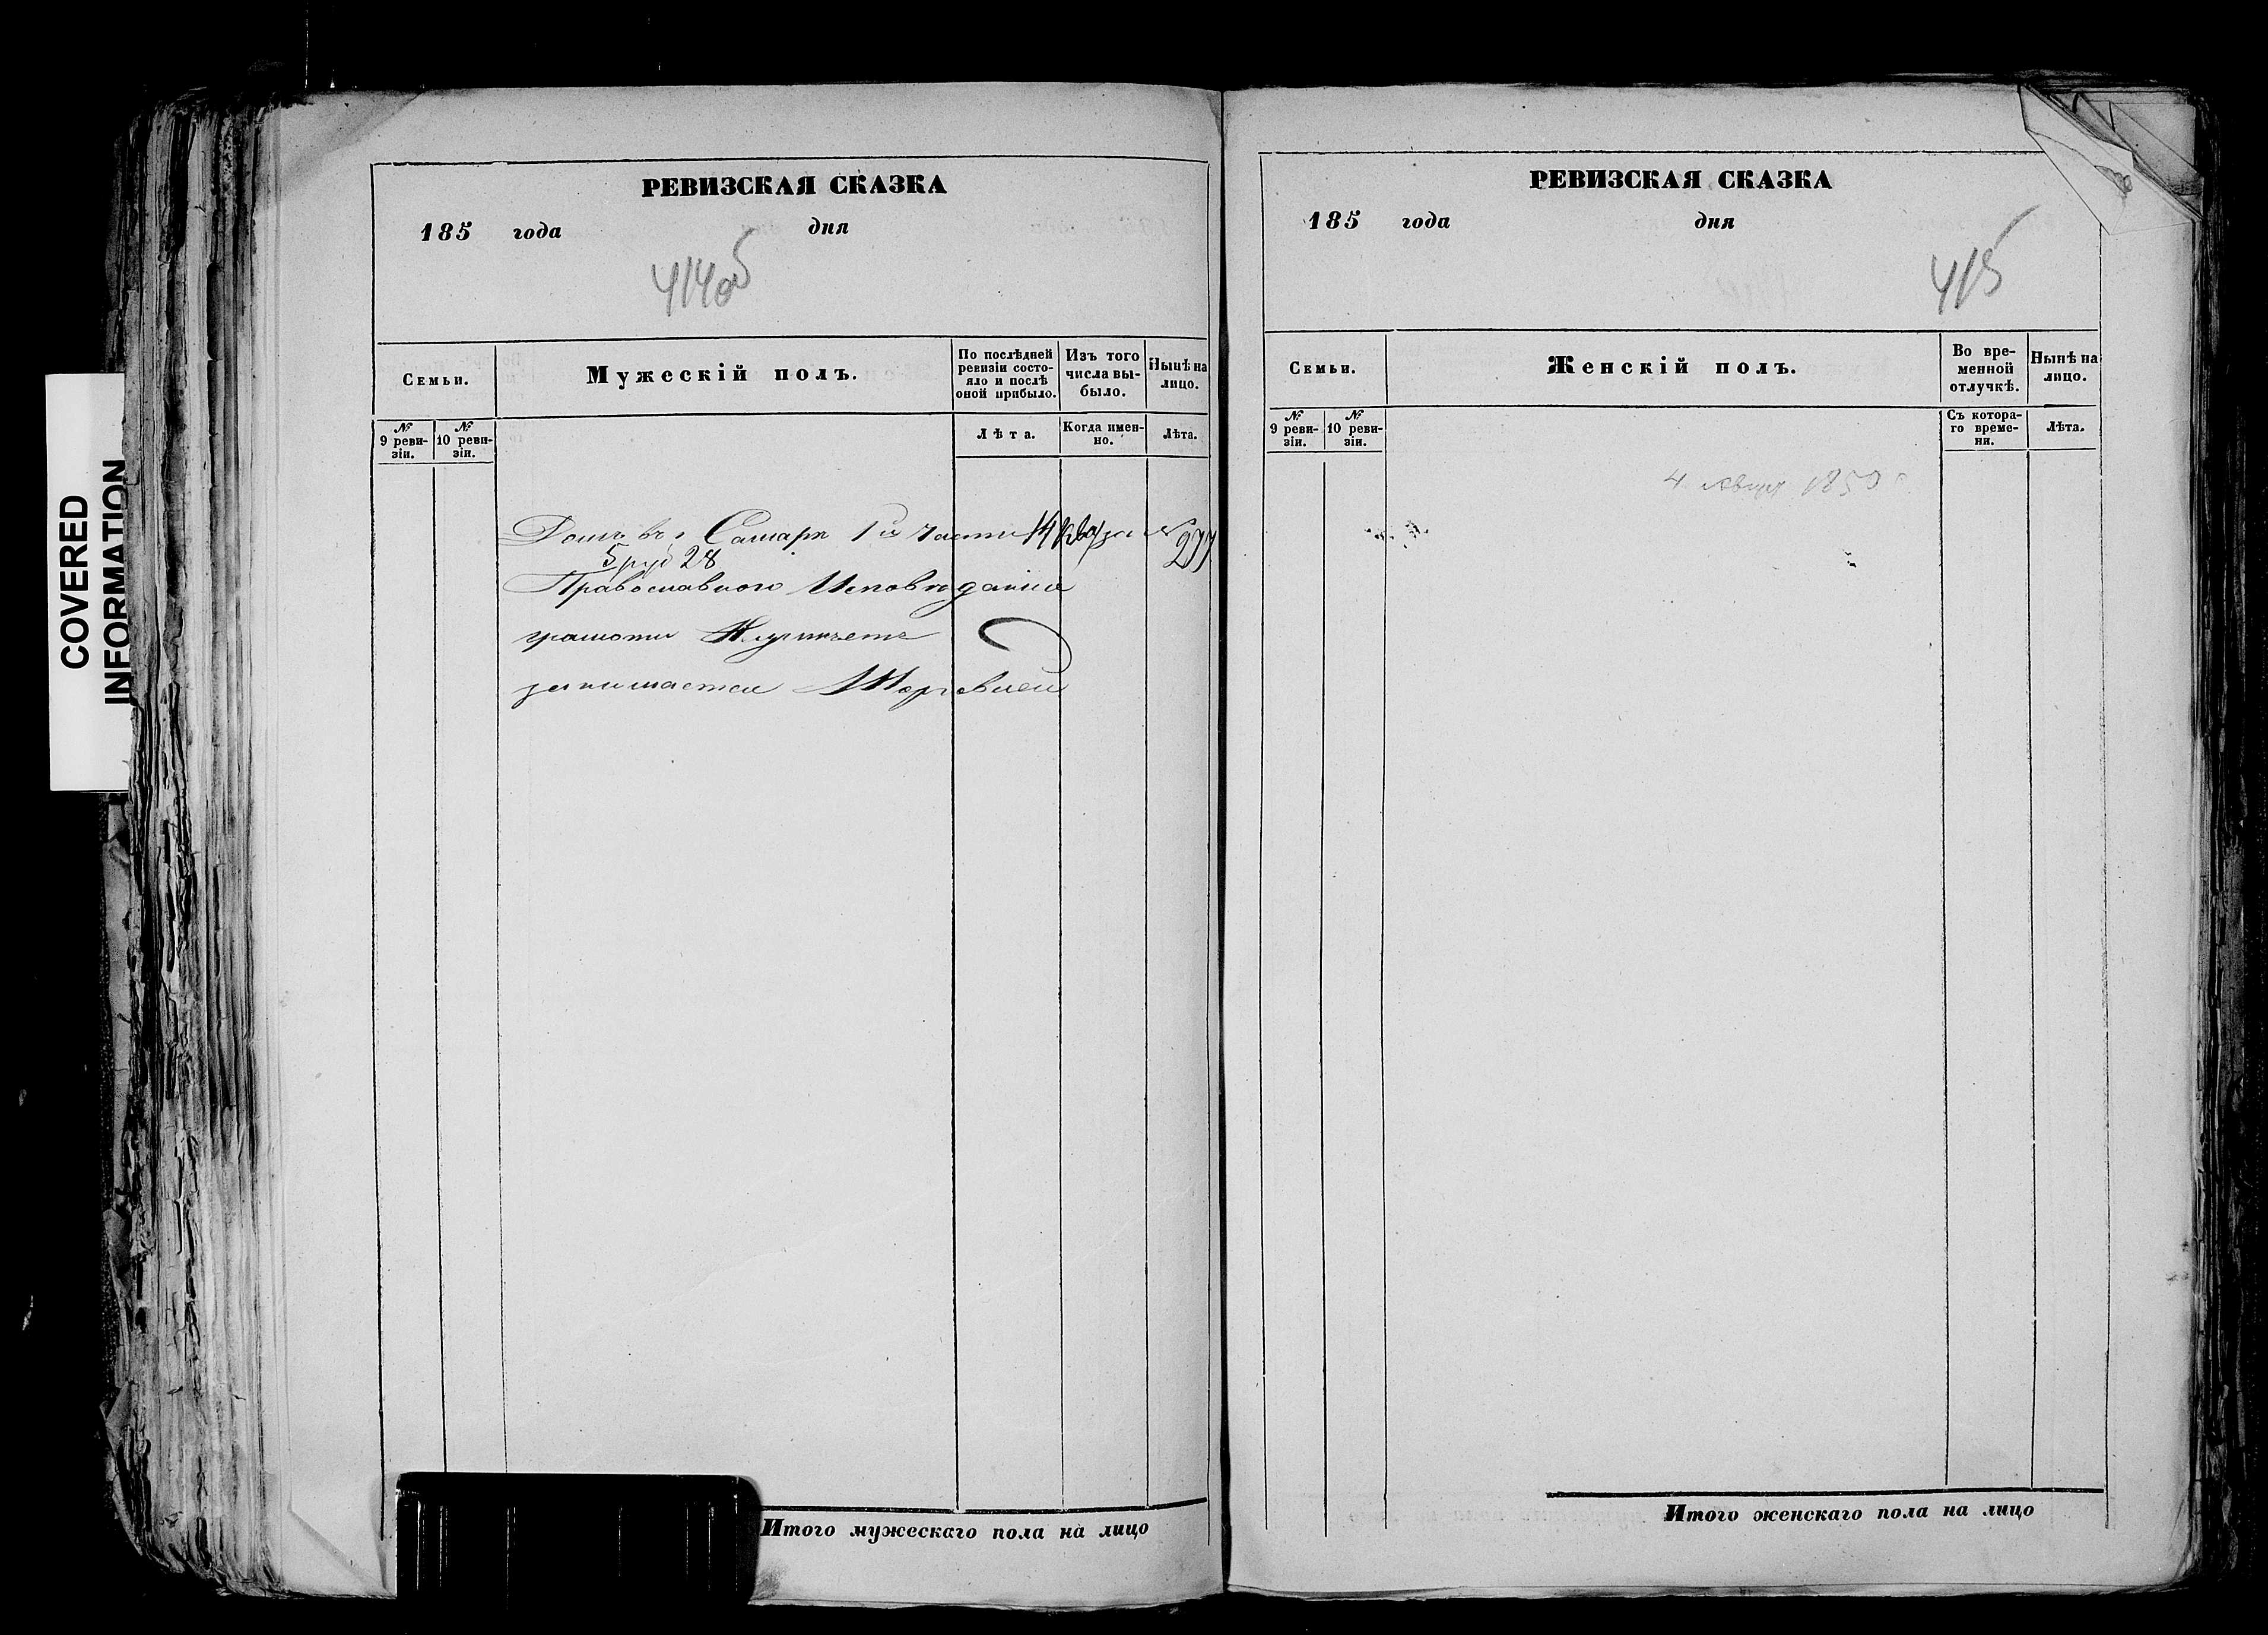 COVERED
INFORMATION
РЕВИЗСКАЯ СКАЗКА
185 года дня
414об
Семьи.
Мужескій полъ.
По послѣдней ревизіи состояло и послѣ оной прибыло.
Изъ того числа выбыло.
Нынѣ на лицо.
№ 9 ревизіи.
№ 10 ревизіи.
Лѣта.
Когда именно.
Лѣта.
Домъ въ г Самарѣ 1й части 14 квар за № 277
5 руб 28
Православного Исповѣданія
грамоти
занимается Торговлей
Итого мужескаго пола на лицо
РЕВИЗСКАЯ СКАЗКА
185 года дня
415
Семьи.
Женскій полъ.
Во временной отлучкѣ.
Нынѣ на лицо.
№ 9 ревизіи.
№ 10 ревизіи.
Съ котораго времени.
Лѣта.
4 1850
Итого женскаго пола на лицо